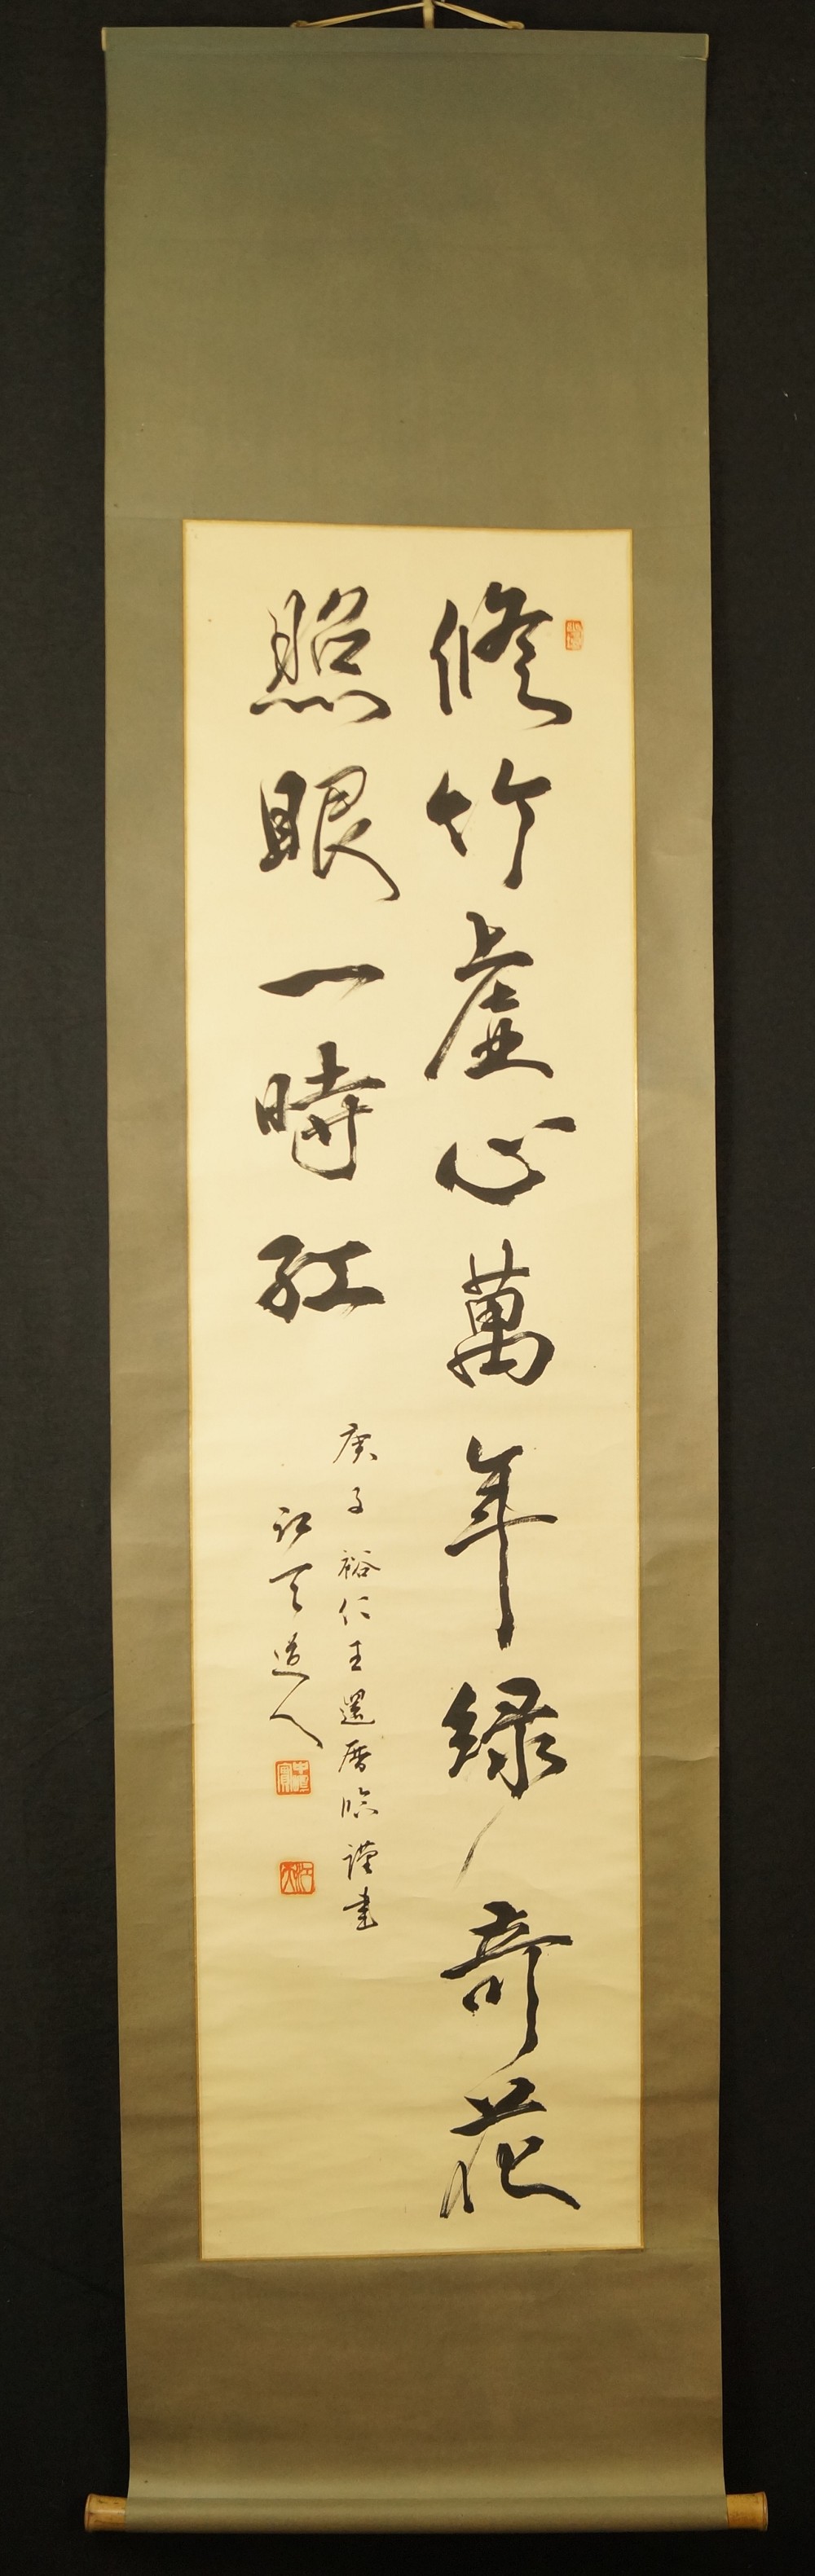 修竹虚心萬年緑奇花
照眼一時紅
庚子裕仁王還暦臨謹書
江天道人